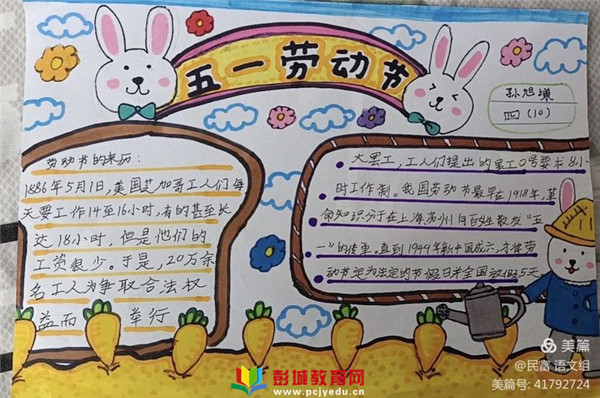 五一劳动节
孙旭
四(10)
劳动节的来历:
1886年5月1日,美国芝加哥工人们每
天要工作14至16小时,有的甚至长
达18小时,但是他们的
工资很少。于是,20万余
名工人为争取合法权
益而 举行
大罢工,工人们提出的罢工口号要求8小
时工作制。我国劳动节最早在1918年,革
命知识分子在上海苏州 向百姓散发“五
一”的传单。直到1949年新中国成 ,才将劳
动节定为法定的节假日并全国放假5天
彭城教育网
www.pcjyedu.cn
美篇
@民富 语文组
美篇号: 41792724